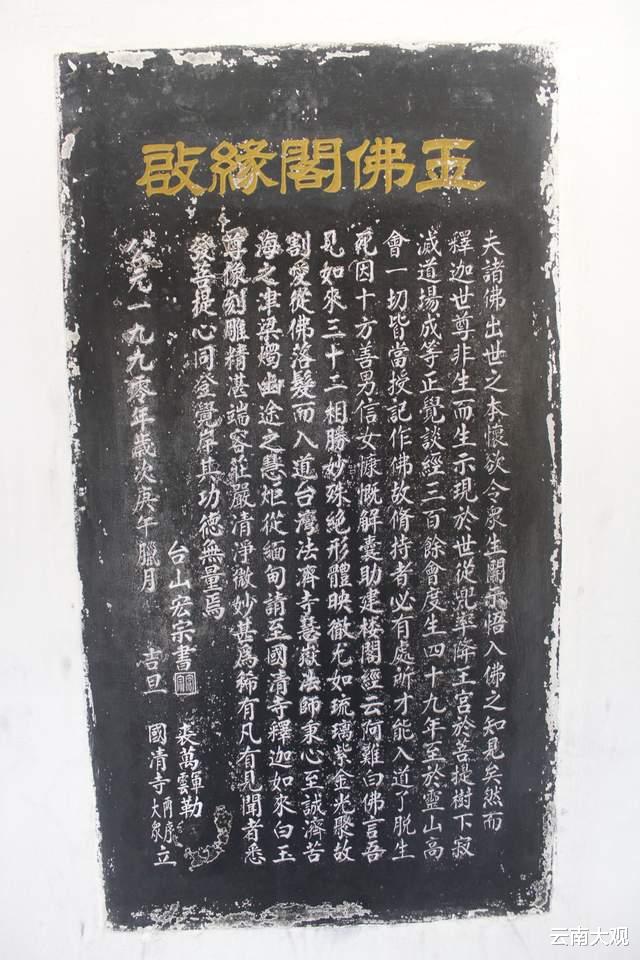 玉佛閣緣啟
夫諸佛出世之本懷欲令眾生開示悟入佛之知見矣然而
釋迦世尊非生而生示現於世從兜率降王宮於菩提樹下寂
滅道場成等正覺談經三百餘會度生四十九年至於靈山高
會一切皆當授記作佛故脩持者必有處所才能入道了脫生
死因十方善男信女慷慨解囊助建楼閣經云阿難白佛言吾
見如來三十二相勝妙殊絕形體映徹尤如琉璃紫金光聚故
割愛從佛落髮而入道台灣法濟寺慧嶽法師秉心至誠濟苦
海之津梁燭幽途之慧炬從緬甸請至國清寺釋迦如來白玉
尊像刻雕精湛端容莊嚴清淨微妙甚為稀有凡有見聞者悉
發菩提心同登覺岸其功德無量焉
台山宏宗書
裘萬雲暉勒
公元一九九零年歲次庚午臘月
吉旦
國清寺兩序大眾立
云南大观